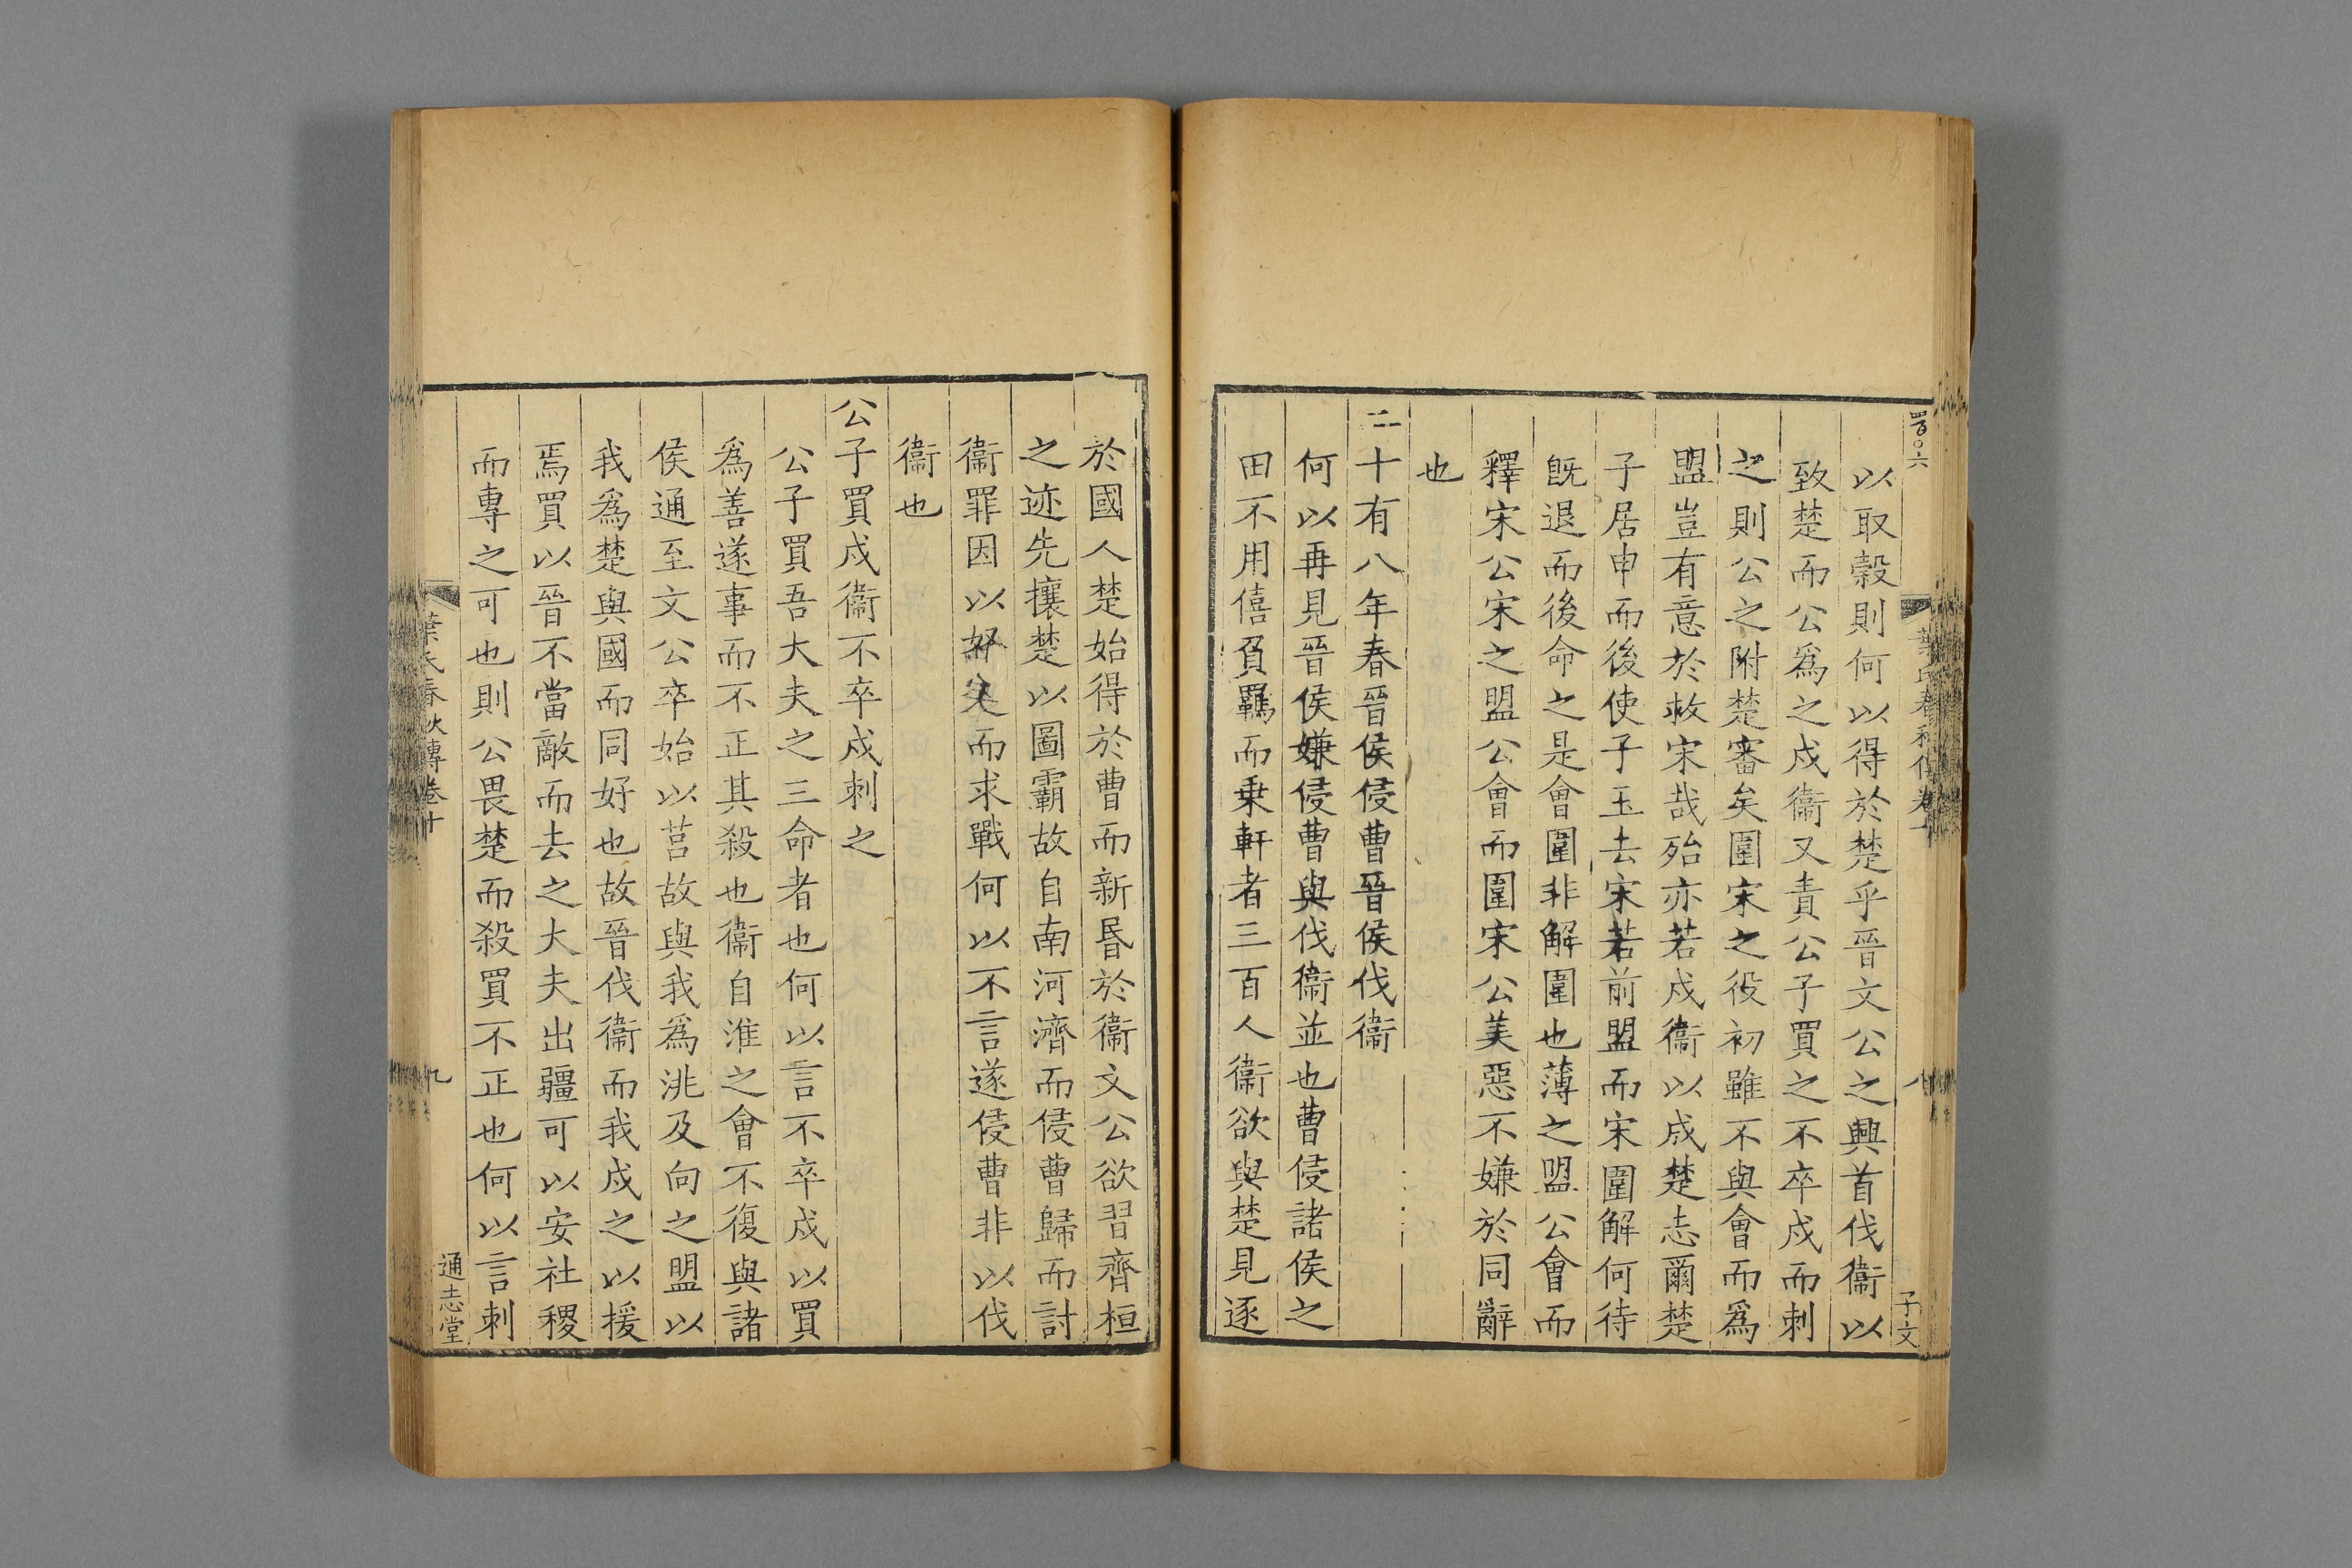 四百〇六
葉氏春秋傳卷十
八
子文
以取穀則何以得於楚乎晉文公之興首伐衞以
致楚而公爲之戍衞又責公子買之不卒戍而刺
之則公之附楚審矣圍宋之役初雖不與會而爲
盟豈有意於救宋哉殆亦若戍衞以成楚志爾楚
子居申而後使子玉去宋若前盟而宋圍解何待
旣退而後命之是會圍非解圍也薄之盟公會而
釋宋公宋之盟公會而圍宋公美惡不嫌於同辭
也
二十有八年春晉侯侵曹晉侯伐衞
何以再見晉侯嫌侵曹與伐衞並也曹侵諸侯之
田不用僖負羈而乗軒者三百人衞欲與楚見逐
於國人楚始得於曹而新昏於衞文公欲習齊桓
之迹先攘楚以圖霸故自南河濟而侵曹歸而討
衞罪因以怒楚而求戰何以不言遂侵曹非以伐
衞也
公子買戍衞不卒戍刺之
公子買吾大夫之三命者也何以言不卒戍以買
爲善遂事而不正其殺也衞自淮之會不復與諸
侯通至文公卒始以莒故與我爲洮及向之盟以
我爲楚與國而同好也故晉伐衞而我戍之以援
焉買以晉不當敵而去之大夫出疆可以安社稷
而專之可也則公畏楚而殺買不正也何以言刺
葉氏春秋傳卷十
九
通志堂